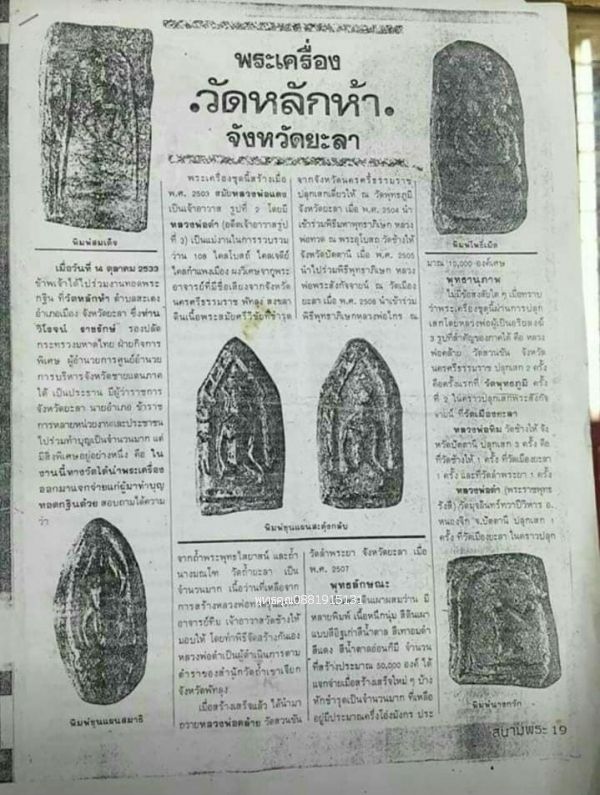 พระเครื่อง
.วัดหลักห้า.
จังหวัดยะลา
พิมพ์สมเด็จ
เมื่อวันที่ 14 ตุลาคม 2533
ข้าพเจ้าได้ไปร่วมงานทอดพระ
กฐิน ที่วัดหลักห้า ตำบลสะเตง
อำเภอเมือง จังหวัดยะลา ซึ่งท่าน
วิโรจน์ ราชรักษ์ รองปลัด
กระทรวงมหาดไทย ฝ่ายกิจการ
พิเศษ ผู้อำนวยการศูนย์อำนวย
การบริหารจังหวัดชายแดนภาค
ใต้ เป็นประธาน มีผู้ว่าราชการ
จังหวัดยะลา นายอำเภอ ข้าราช
การหลายหน่วยงานและประชาชน
ไปร่วมทำบุญเป็นจำนวนมาก แต่
มีสิ่งพิเศษอยู่อย่างหนึ่ง คือ ใน
งานนี้ทางวัดได้นำพระเครื่อง
ออกมาแจกจ่ายแก่ผู้มาทำบุญ
ทอดกฐินด้วย สอบถามได้ความ
ว่า
พิมพ์ขุนแผนสมาธิ
พระเครื่องชุดนี้สร้างเมื่อ
พ.ศ. 2503 สมัยหลวงพ่อแดง
เป็นเจ้าอาวาส รูปที่ 2 โดยมี
หลวงพ่อดำ (อดีตเจ้าอาวาสรูป
ที่ 3) เป็นแม่งานในการรวบรวม
ว่าน 108 ไคลโบสถ์ ไคลเจดีย์
ไคลกำแพงเมือง ผงวิเศษจากพระ
อาจารย์ที่มีชื่อเสียงจากจังหวัด
นครศรีธรรมราช พัทลุง สงขลา
ดินเนื้อพระสมัยศรีวิชัยที่ชำรุด
พิมพ์ขุนแผนสะดุ้งกลับ
จากถ้ำพระพุทธไสยาสน์ และถ้ำ
นางมณโฑ วัดถ้ำยะลา เป็น
จำนวนมาก เนื้อว่านที่เหลือจาก
การสร้างหลวงพ่อ
พุทธคุณ0881915131
อาจารย์ทิม เจ้าอาวาสวัดช้างให้
มอบให้ โดยทำพิธีจัดสร้างกันเอง
หลวงพ่อดำเป็นผู้ดำเนินการตาม
ตำราของสำนักวัดถ้ำเขาเจียก
จังหวัดพัทลุง
เมื่อสร้างเสร็จแล้ว ได้นำมา
ถวายหลวงพ่อคล้าย วัดสวนขัน
จากจังหวัดนครศรีธรรมราช
ปลุกเสกเดี่ยวให้ ณ วัดพุทธภูมิ
จังหวัดยะลา เมื่อ พ.ศ. 2504 นำ
เข้าร่วมพิธีมหาพุทธาภิเษก หลวง
พ่อทวด ณ พระอุโบสถ วัดช้างให้
จังหวัดปัตตานี เมื่อ พ.ศ. 2505
นำไปร่วมพิธีพุทธาภิเษก หลวง
พ่อพระสังกัจจายน์ ณ วัดเมือง
ยะลา เมื่อ พ.ศ. 2506 นำเข้าร่วม
พิธีพุทธาภิเษกหลวงพ่อไกร ณ
วัดลำพระยา จังหวัดยะลา เมื่อ
พ.ศ. 2507
พุทธลักษณะ
ดินเผาผสมว่าน มี
หลายพิมพ์ เนื้อหนึกนุ่ม สีดินเผา
แบบสีอิฐเก่าสีน้ำตาล สีเทาอมดำ
สีแดง สีน้ำตาลอ่อนก็มี จำนวน
ที่สร้างประมาณ 50,000 องค์ ได้
แจกจ่ายเมื่อสร้างเสร็จใหม่ ๆ บ้าง
หักชำรุดเป็นจำนวนมาก ที่เหลือ
อยู่มีประมาณครึ่งโอ่งมังกร ประ
พิมพ์โพธิ์เม็ด
มาณ 10,000 องค์เศษ
พุทธานุภาพ
ไม่มีข้อสงสัยใด ๆ เมื่อทราบ
ว่าพระเครื่องชุดนี้ผ่านการปลุก
เสกโดยหลวงพ่อผู้เป็นอริยสงฆ์
3 รูปที่สำคัญของภาคใต้ คือ หลวง
พ่อคล้าย วัดสวนขัน จังหวัด
นครศรีธรรมราช ปลุกเสก 2 ครั้ง
คือครั้งแรกที่ วัดพุทธภูมิ ครั้ง
ที่ 2 ในคราวปลุกเสกพระสังกัจ
จายน์ ที่วัดเมืองยะลา
หลวงพ่อทิม วัดช้างให้ จัง
หวัดปัตตานี ปลุกเสก 3 ครั้ง คือ
ที่วัดช้างให้ 1 ครั้ง ที่วัดเมืองยะลา
1 ครั้ง และที่วัดลำพระยา 1 ครั้ง
หลวงพ่อดำ (พระราชพุทธ
รังสี) วัดมุจลินทร์วาปีวิหาร อ.
หนองจิก จ.ปัตตานี ปลุกเสก 1
ครั้ง ที่วัดเมืองยะลา ในคราวปลุก
พิมพ์นางกวัก
สนามพระ 19